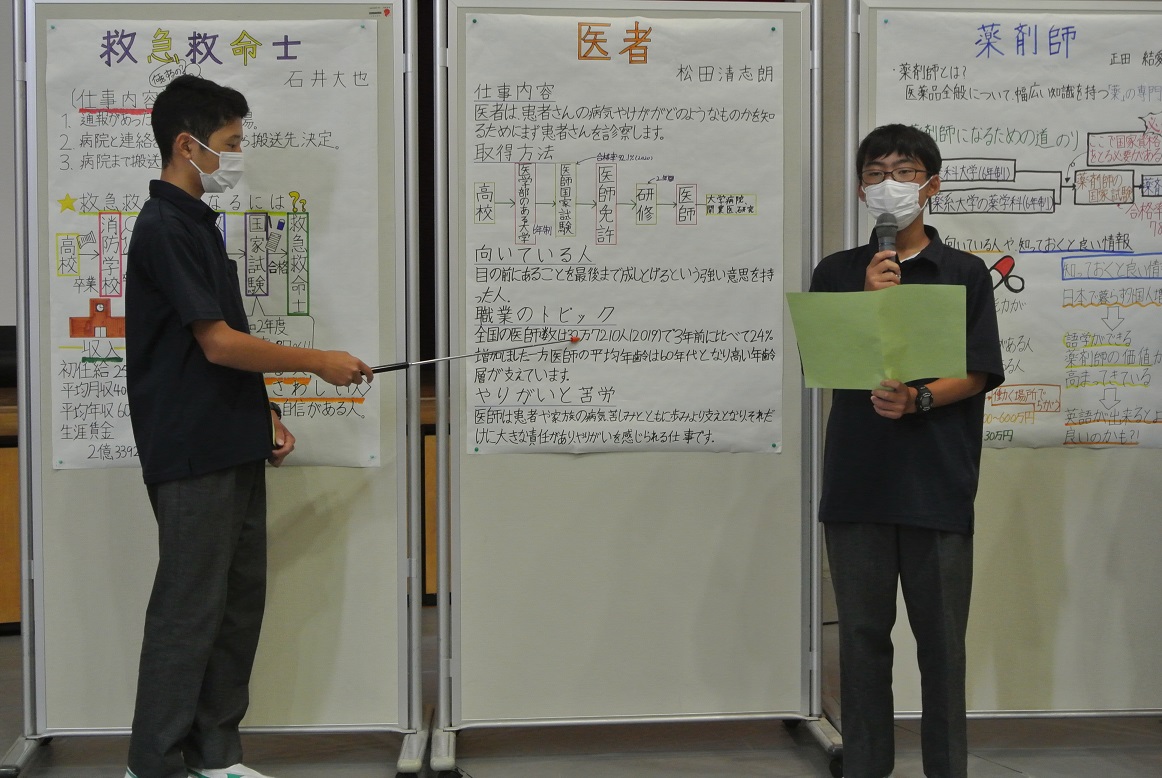 救急救命士
石井大也
仕事内容
1. 通報があった
2. 病院と連絡 搬送先決定。
3. 病院まで搬送
救急救 なるには??
高校
消防学校
国家試験
合格
救急救命士
卒業
2年度
収入
初任給
平均月収40
平均年収60
生涯賃金
2億3392
さわしい人
自信がある人。
医者
松田清志朗
仕事内容
医者は、患者さんの病気やけががどのようなものかを知
るためにまず患者さんを診察します。
取得方法
高校
医学部のある大学
6年制
医師国家試験
医師免許
研修
2年間
医師
大学病院、
開業医、研究
向いている人
目の前にあることを最後まで成しとげるという強い意思を持
った人.
職業のトピック
全国の医師数は32万7210人(2019)で3年前に比べて2.4%
増加しました一方医師の平均年齢は60年代となり高い年齢
層が支えています。
やりがいと苦労
医師は患者や家族の病気苦しみとともに歩みより支えとなりそれだ
けに大きな責任がありやりがいを感じられる仕事です。
薬剤師
正田 結
・薬剤師とは?
医薬品全般について、幅広い知識を持つ「薬」の専門
薬剤師になるための道のり
科大学(6年制)
薬系大学の薬学科(6年制)
薬剤師の
国家試験
ここで国家資格
をとる必要がある
合格率
78
向いている人や知っておくと良い情報
知っておくと良い情
日本で暮らす外国人増
語学ができる
薬剤師の価値が
高まってきている
英語が出来ると
良いのかも?!
能力が
がある人
働く場所で
ちがう
600万円
30万円